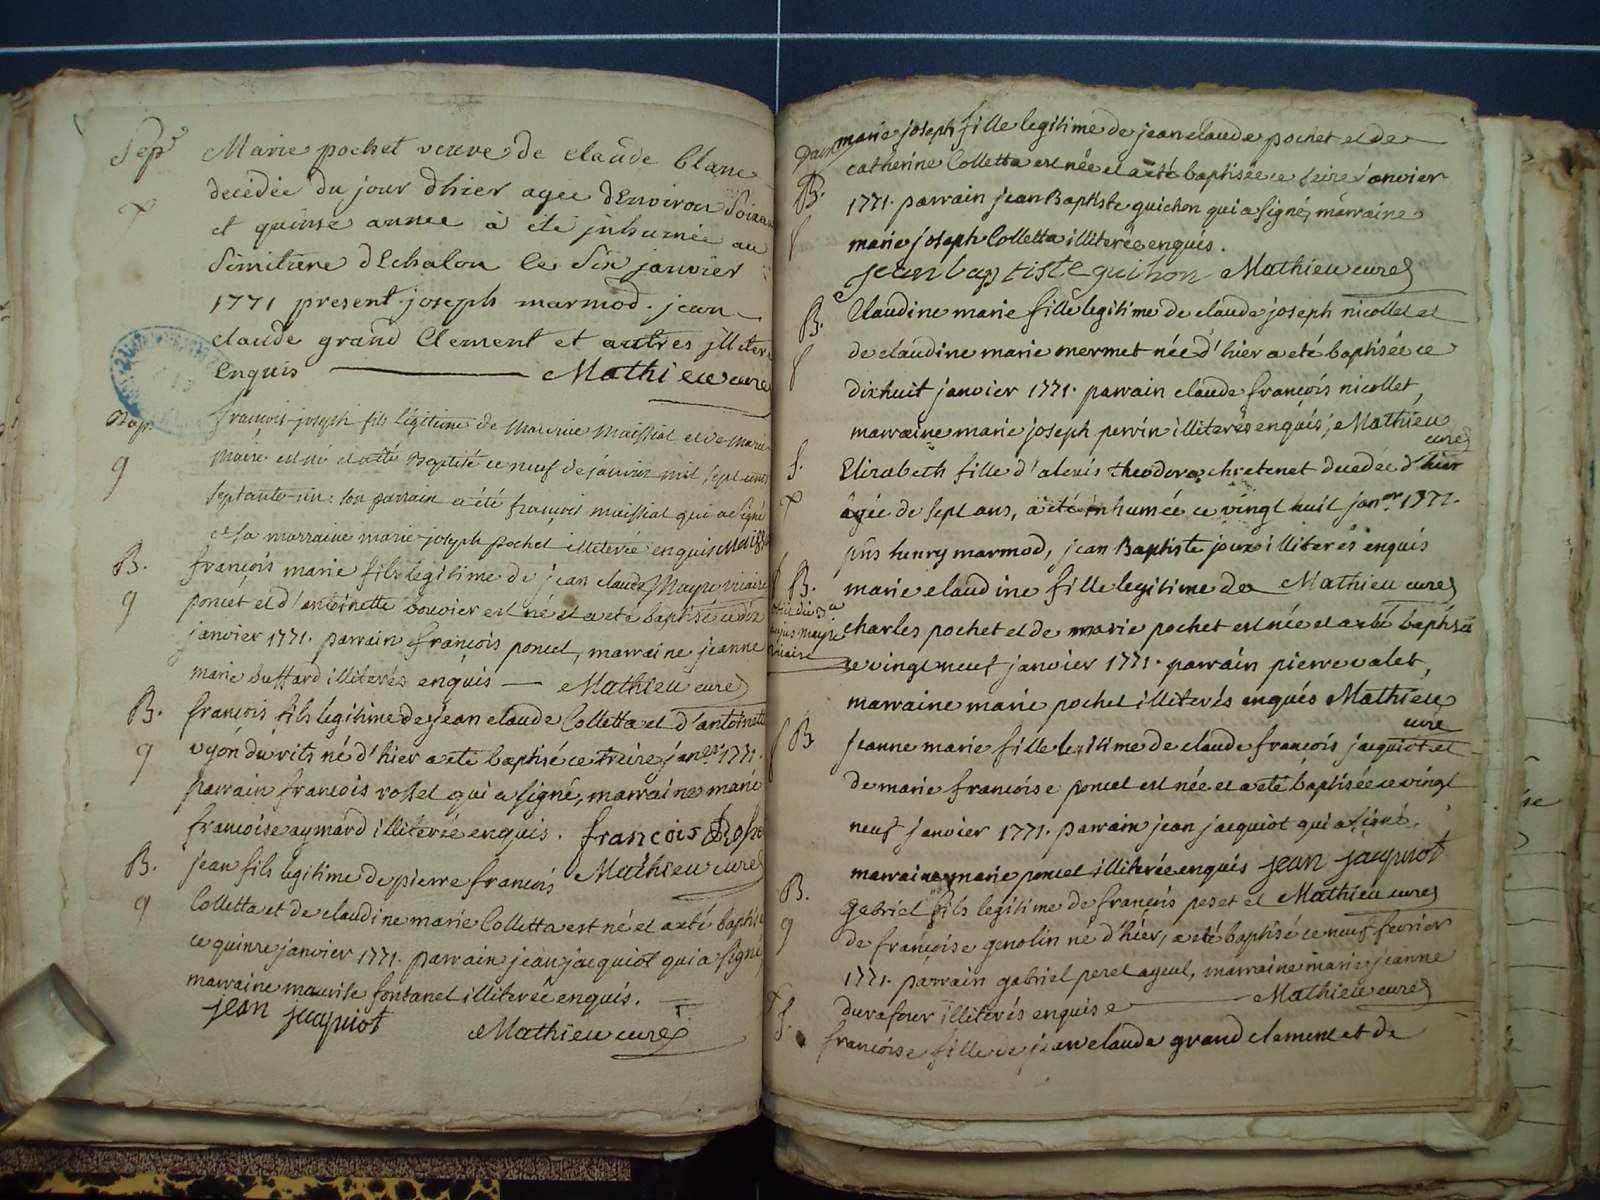 Sep.re Marie pochet veuve de claude blanc
decedée du jour d'hier agée d'Environ Soixan
et quinse année à été inhumée au
Simitiere d'Echalon le Six janvier
1771 present joseph marmod. jean
claude grand Clement et autres illiter
Enquis Mathieu curé
Bap. francois joseph fils légitime de Maurice Maissiat et de Marie
Maire est né et a été Baptisé ce neuf de janvier mil Sept cent
Septante-un: son parrain a été francois maissiat qui a Signé
et sa marraine marie joseph pochet illiterée enquis Maissiat
B. françois marie fils legitime de jean claude Mayre vicaire
poncet et d'antoinette bouvier est né et a eté baptisé ce dix
janvier 1771. parrain françois poncet, marraine jeanne
marie buffard illiterés enquis — Mathieu curé
B. françois fils legitime de jean claude Colletta et d'antoinette
vyon durits né d'hier a eté baptisé ce treize jan.er 1771.
parrain francois rosset qui a signé, marraine marie
francoise aymard illiterée enquis. francois Rosse
jean fils legitime de pierre francois Mathieu curé
B. Colletta et de claudine marie Colletta est né et a eté baptisé
ce quinze janvier 1771. parrain jean jacquiot qui a signé
marraine maurise fontanel illiterée enquis.
jean jacquiot Mathieu curé
marie joseph fille legitime de jean claude poncet et de
catherine Colletta est née et a eté baptisée ce seize janvier
B. 1771. parrain jean Baptiste guichon qui a signé, marraine
marie joseph Colletta illiterée enquis.
jean baptiste guihon Mathieu curé
B. Claudine marie fille legitime de claude joseph nicollet et
de claudine marie mermet née d'hier a eté baptisée ce
dixhuit janvier 1771. parrain claude françois nicollet,
marraine marie joseph perrin illiterés enquis, Mathieu
curé
S. Elizabeth fille d'alexis theodore chretenet decedée d'hier
âgée de sept ans, a été inhumée ce vingt huit jan.er 1771.
pñs henry marmod, jean Baptiste joux illiterés enquis
B. marie claudine fille legitime de Mathieu curé
charles pochet et de marie pochet est née et a eté baptisée
ce vingt neuf janvier 1771. parrain pierre valet,
marraine marie pochet illiterés enquis Mathieu
curé
B. Jeanne marie fille legitime de claude françois jacquiot et
de marie françoise poncet est née et a eté baptisée ce vingt
neuf janvier 1771. parrain jean jacquiot qui a signé,
marraine marie poncet illiterée enquis jean jacquiot
B. gabriel fils legitime de françois peret et Mathieu curé
de françoise genolin né d'hier, a eté baptisé ce neuf fevrier
1771. parrain gabriel peret ayeul, marraine marie jeanne
durafour illiterés enquise Mathieu curé
S. françoise fille de jean claude grand clement et de